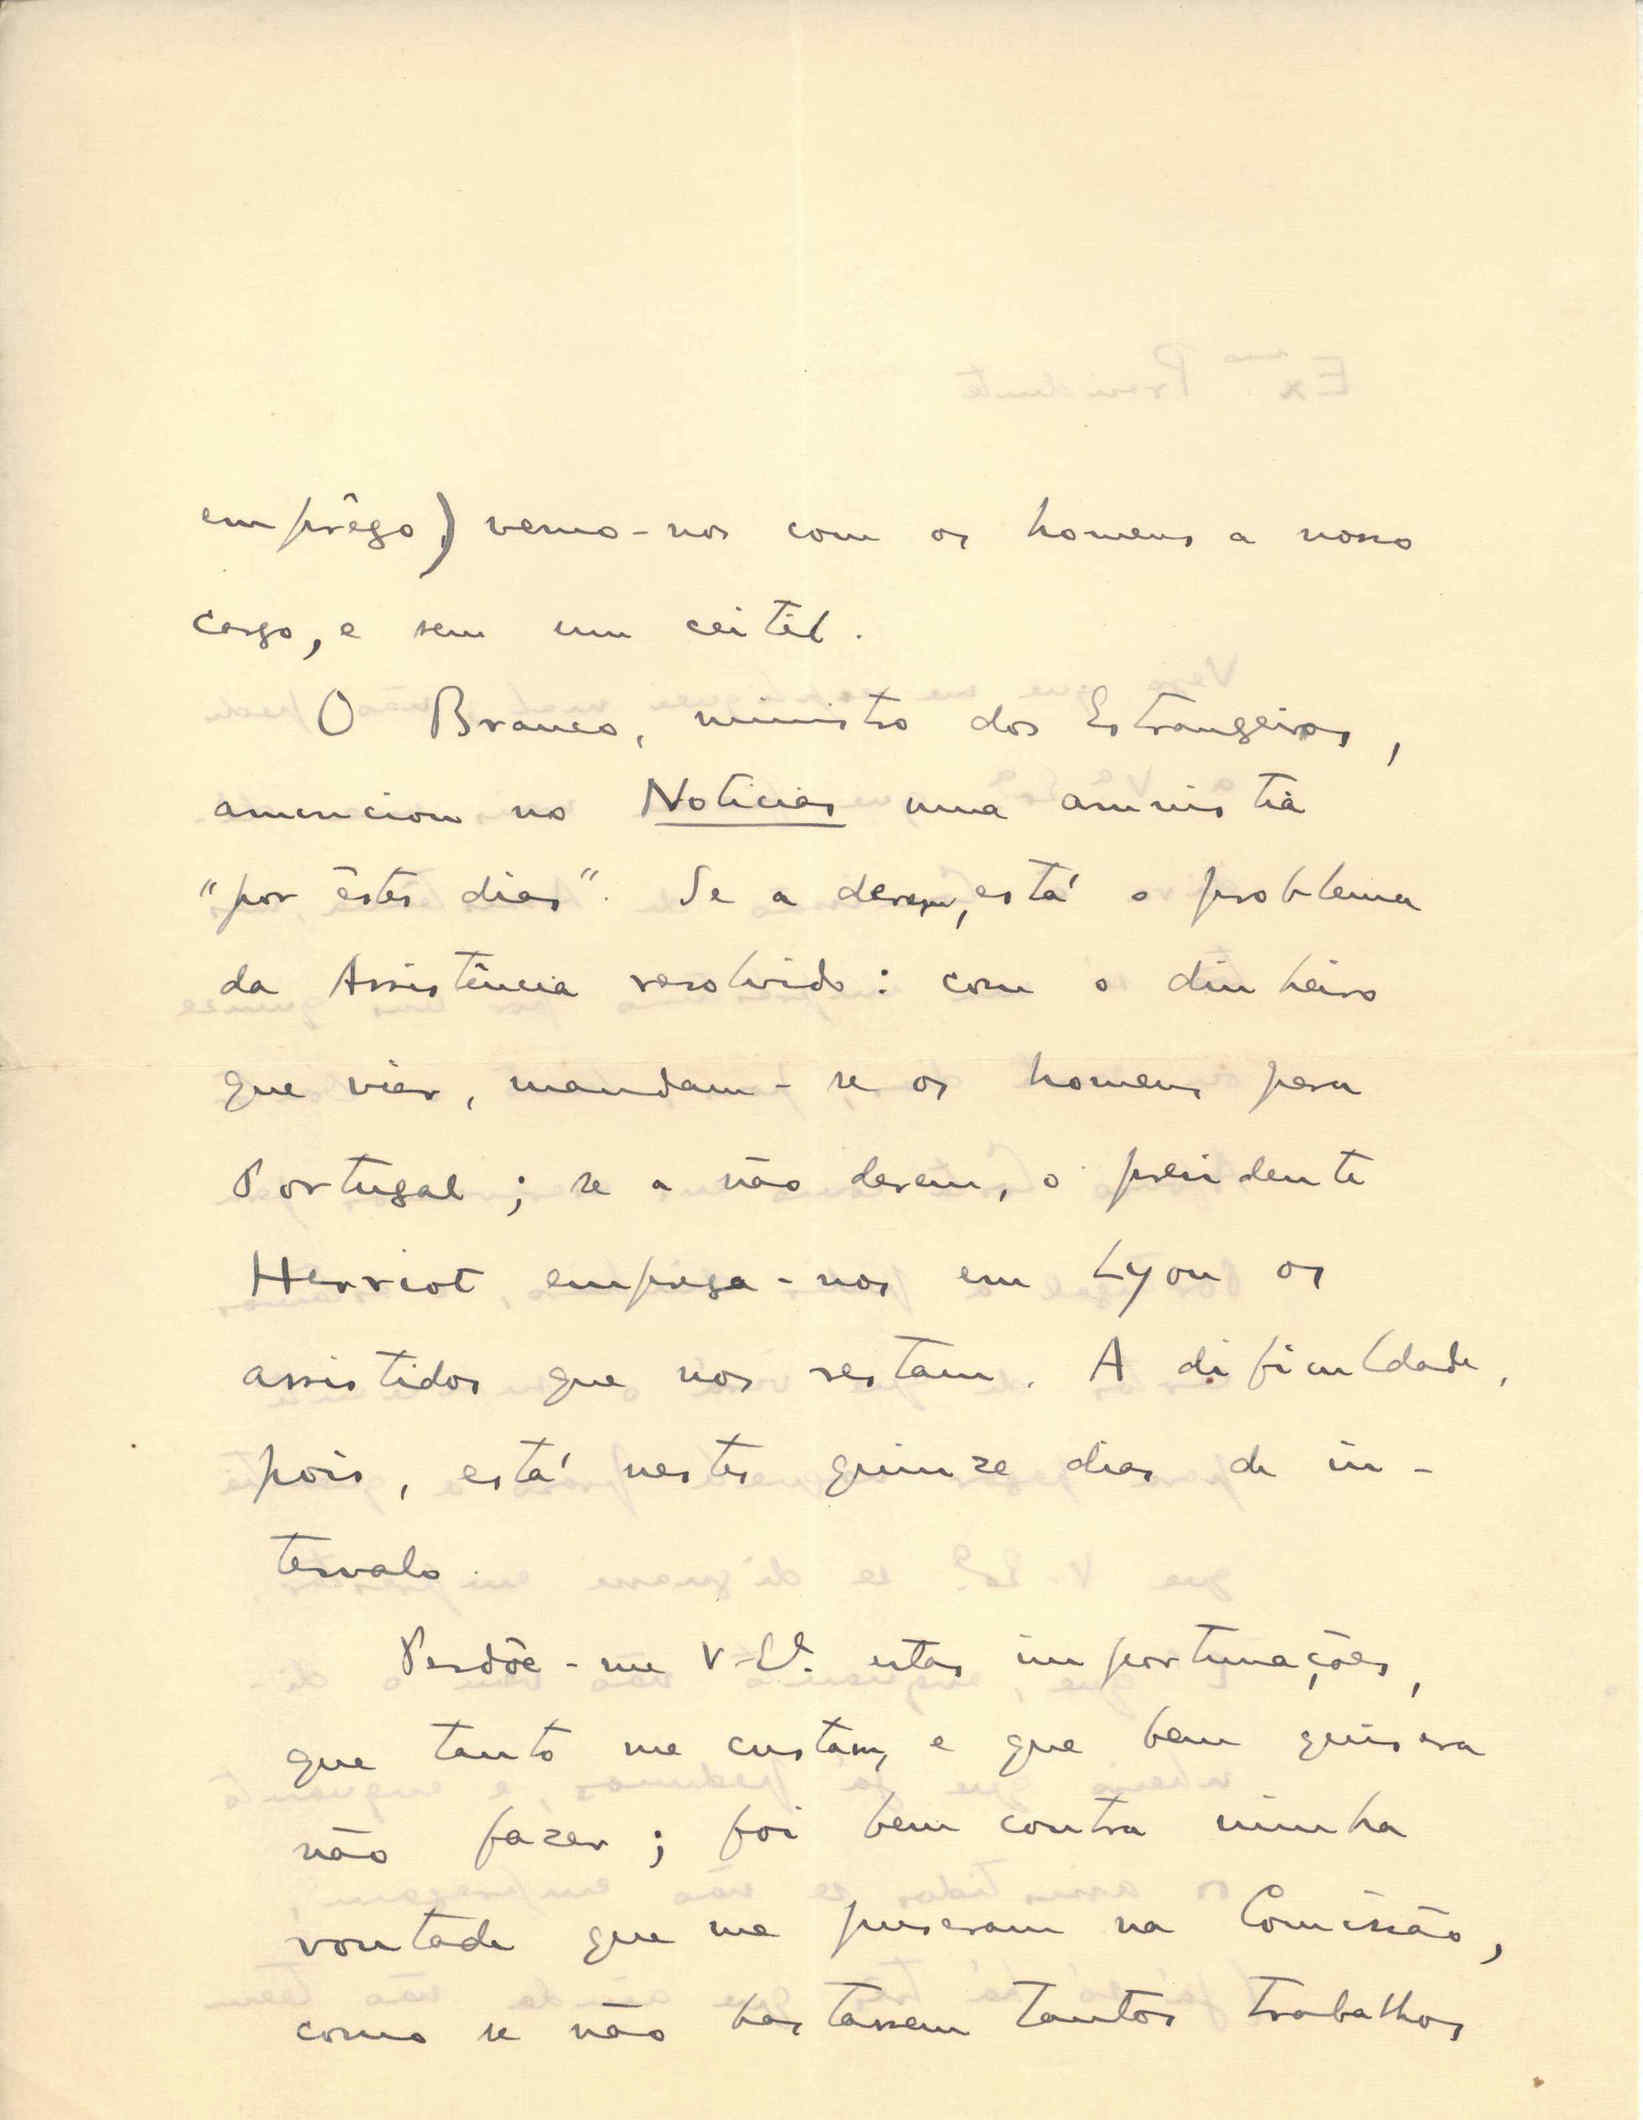 emprêgo) vemo-nos com os homens a nosso
cargo, e sem um ceitil.
O Branco, ministro dos Estrangeiros,
anunciou no Noticias uma amnistia
"por êstes dias". Se a derem, está o problema
da Assistência resolvido: com o dinheiro
que vier, mandam-se os homens para
Portugal; se a não derem, o presidente
Herriot emprega-nos em Lyon os
assistidos que nos restam. A dificuldade,
pois, está nestes quinze dias de in-
tervalo.
Perdõe-me V. Ex.ª estas importunações,
que tanto me custam, e que bem quisera
não fazer; foi bem contra minha
vontade que me puseram na Comissão,
como se não bastassem tantos trabalhos